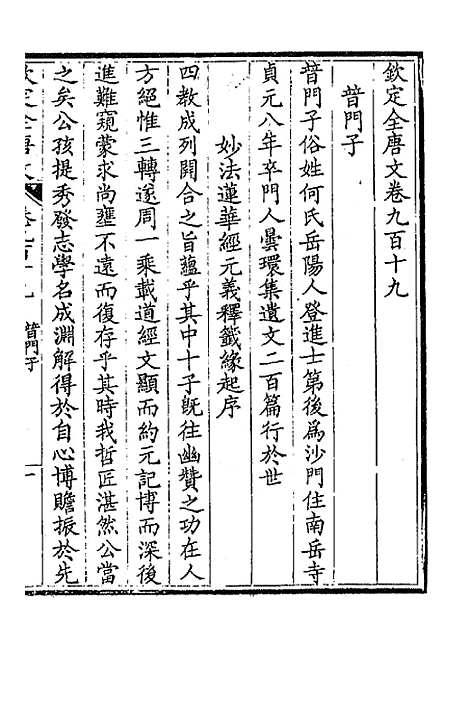 欽定全唐文卷九百十九
普門子
普門子俗姓何氏岳陽人登進士第後爲沙門住南岳寺
貞元八年卒門人曇環集遺文二百篇行於世
妙法蓮華經元義釋籤緣起序
四教成列開合之旨蘊乎其中十子旣往幽贊之功在人
方絕惟三轉遂周一乘載道經文顯而約元記博而深後
進難窺蒙求尚壅不遠而復存乎其時我哲匠湛然公當
之矣公孩提秀發志學名成淵解得於自心博贍振於先
欽定全唐文 卷九百十九 普門子 一